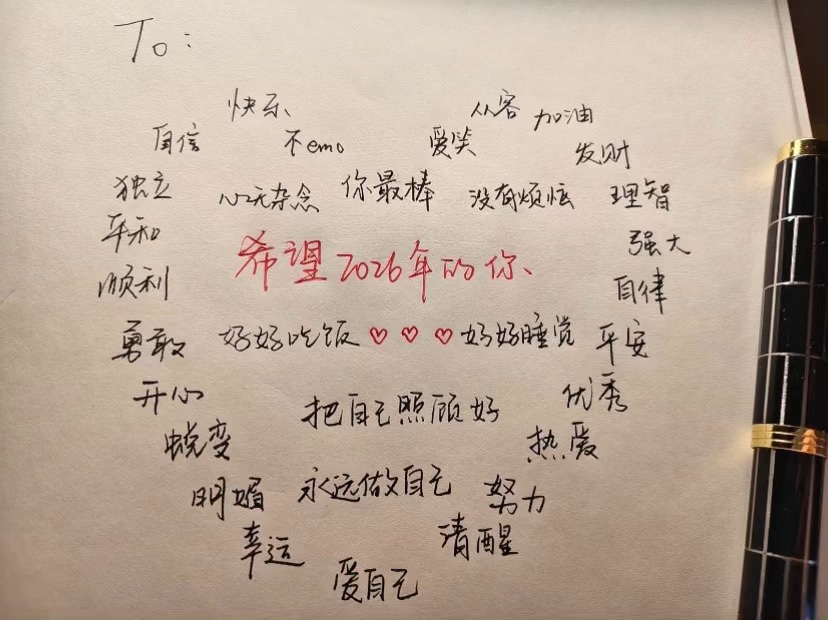 To:
快乐
从容
加油
自信
不emo
爱笑
发财
独立
心无杂念
你最棒
没有烦恼
理智
平和
希望2026年的你、
强大
顺利
自律
勇敢
好好吃饭♡♡♡好好睡觉
平安
开心
把自己照顾好
优秀
蜕变
热爱
明媚
永远做自己
努力
幸运
清醒
爱自己